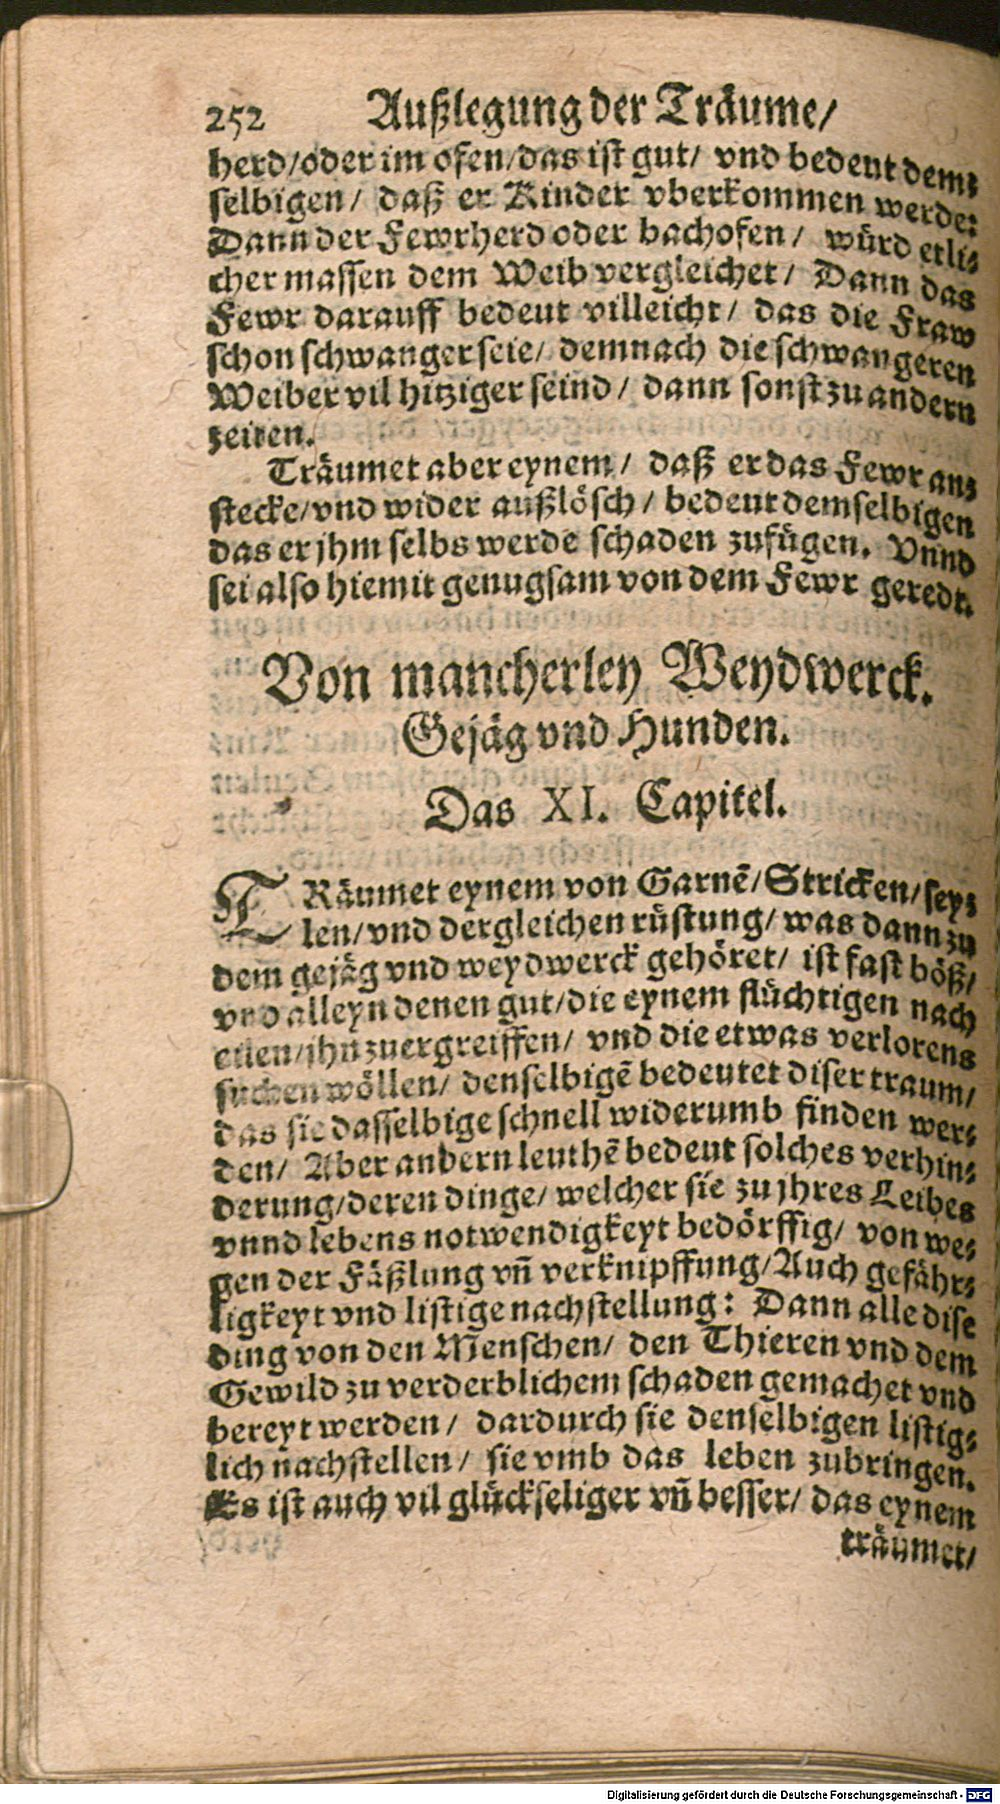 252 Außlegung der Träume/
herd/oder im ofen/das ist gut/ vnd bedeut dem⸗
selbigen/ daß er Kinder vberkommen werde:
Dann der Fewrherd oder bachofen/ würd etli⸗
cher massen dem Weib vergleichet/ Dann das
Fewr darauff bedeut villeicht/ das die Fraw
schon schwanger seie/ demnach die schwangeren
Weiber vil hitziger seind/ dann sonst zu andern
zeiten.
Träumet aber eynem/ daß er das Fewr an⸗
stecke/vnd wider außlösch/ bedeut demselbigen
das er jhm selbs werde schaden zufügen. Vnnd
sei also hiemit genugsam von dem Fewr geredt.
Von mancherley Weydwerck.
Gejäg vnd Hunden.
Das XI. Capitel.
TRäumet eynem von Garnē/Stricken/sey⸗
len/vnd dergleichen rüstung/ was dann zu
dem gejäg vnd weydwerck gehöret/ ist fast böß/
vnd alleyn denen gut/die eynem flüchtigen nach
eilen/jhn zuergreiffen/ vnd die etwas verlorens
suchen wöllen/ denselbigē bedeutet diser traum/
das sie dasselbige schnell widerumb finden wer⸗
den/ Aber andern leuthē bedeut solches verhin⸗
derung/deren dinge/ welcher sie zu jhres Leibes
vnnd lebens notwendigkeyt bedörffig/ von we⸗
gen der Fäßlung vñ verknipffung/Auch gefähr⸗
ligkeyt vnd listige nachstellung: Dann alle dise
ding von den Menschen/ den Thieren vnd dem
Gewild zu verderblichem schaden gemachet vnd
bereyt werden/ dardurch sie denselbigen listig⸗
lich nachstellen/ sie vmb das leben zubringen.
Es ist auch vil glückseliger vñ besser/ das eynem
träumet/
Digitalisierung gefördert durch die Deutsche Forschungsgemeinschaft - DFG